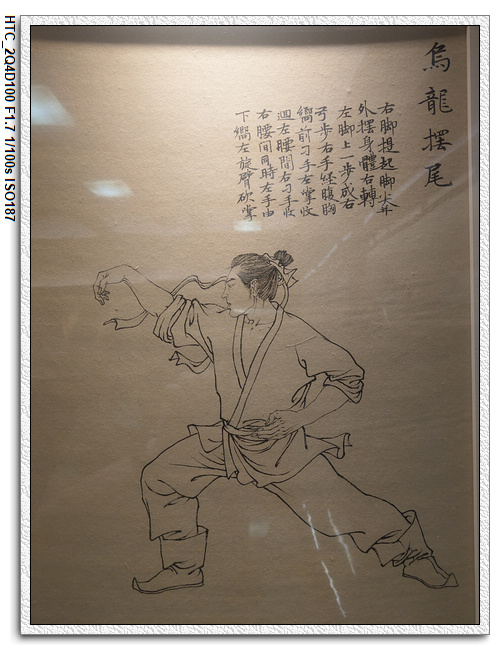 烏龍擺尾
右脚提起脚尖并
外擺身體右轉
左脚上一步成右
弓步右手经腹胸
嚮前刁手左掌收
迴左腰間右刁手收
右腰间同時左手由
下嚮左旋臂砍掌
HTC_2Q4D100 F1.7 1/100s ISO187